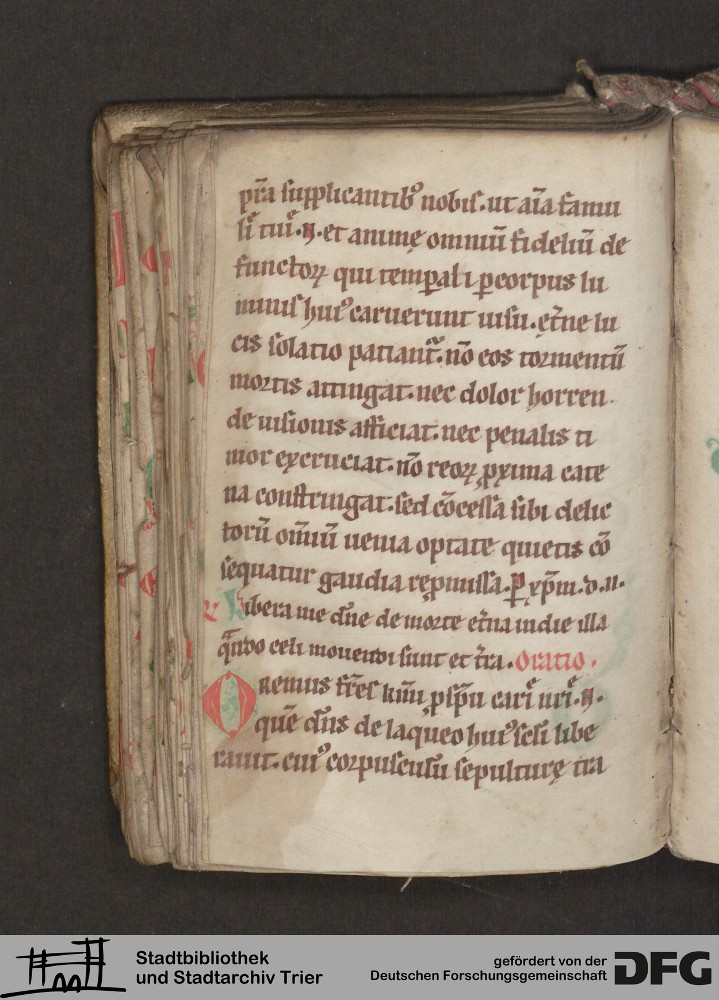 p̄ra supplicantibꝰ nobis. ut aīa famu
li tui. N. et animę omniū fideliū de
functoꝝ qui temꝑali ꝑ corpus lu
minis huiꝰ caruerunt uisu. ęt̄ne lu
cis solatio patiant᷑. nō eos tormentū
mortis attingat. nec dolor horren
de uisionis afficiat. nec penalis ti
mor excruciat. nō reoꝝ ꝓxima cate
na constringat. sed cōcessa sibi delic
torū om̄iū uenia optate quietis cō
sequatur gaudia repmissa. ꝑ xp̄m. d. n.
℟ Libera me dn̄e de morte et̄na in die illa
qn̄do celi mouendi sunt et t̄ra. Oratio.
Oremus fr̄es km̄i ꝓ sp̄u cari nri. N.
quē dn̄s de laqueo huiꝰ scl̄i libe
rauit. cuiꝰ corpusculū sepulturę tra
Stadtbibliothek
und Stadtarchiv Trier
gefördert von der
Deutschen Forschungsgemeinschaft
DFG